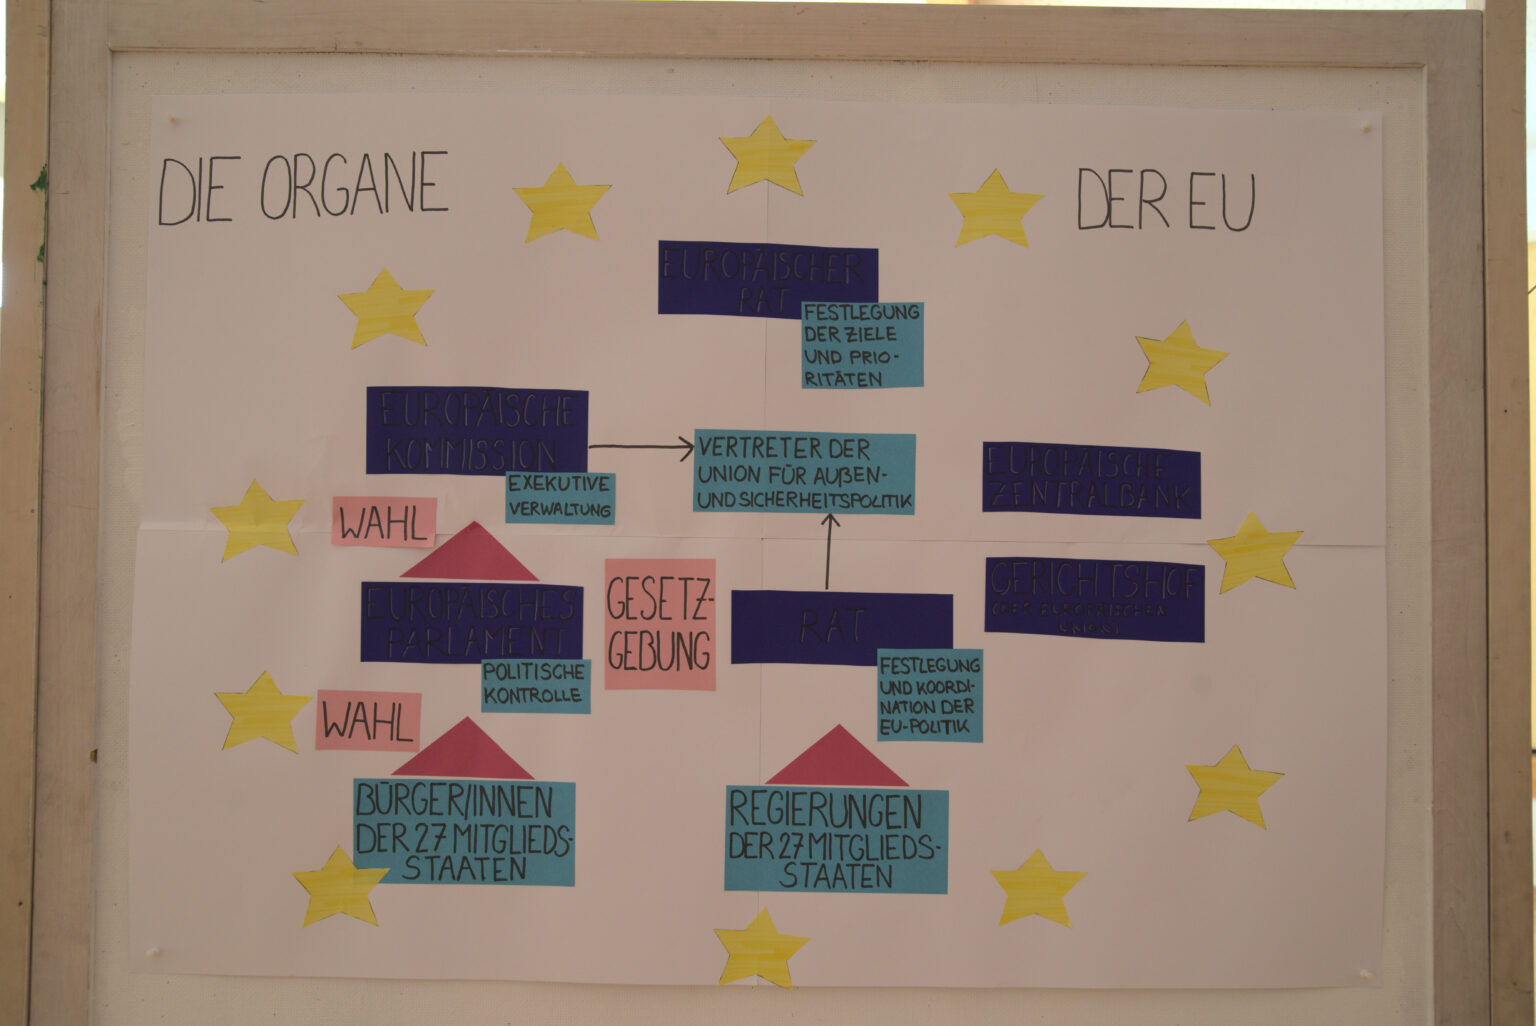 DIE ORGANE DER EU
EUROPÄISCHER
RAT
FESTLEGUNG
DER ZIELE
UND PRIO-
RITÄTEN
EUROPÄISCHE
KOMMISSION
EXEKUTIVE
VERWALTUNG
VERTRETER DER
UNION FÜR AUßEN-
UND SICHERHEITSPOLITIK
EUROPÄISCHE
ZENTRALBANK
WAHL
EUROPÄISCHES
PARLAMENT
POLITISCHE
KONTROLLE
GESETZ-
GEBUNG
RAT
FESTLEGUNG
UND KOORDI-
NATION DER
EU-POLITIK
GERICHTSHOF
(DER EUROPÄISCHEN
UNION)
WAHL
BÜRGER/INNEN
DER 27 MITGLIEDS-
STAATEN
REGIERUNGEN
DER 27 MITGLIEDS-
STAATEN